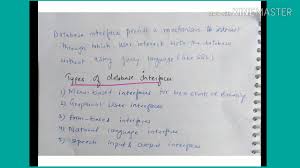 KINEMASTER
Database interface provide a mechanism to interact
through which user interact with the database
without using query language (like SQL).
Types of database interfaces
1) Menu-based interfaces for
2) Graphical User interfaces
3) Form-based interfaces
4) Natural language interfaces
5) Speech input & output interfaces